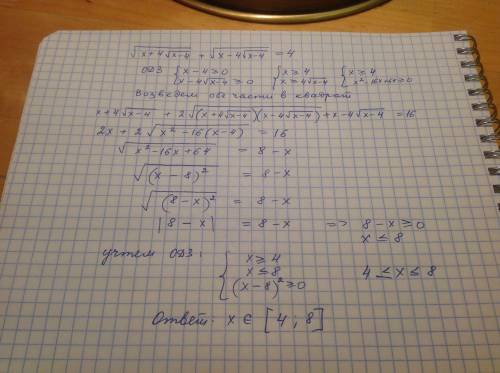 √(x+4√(x-4)) + √(x-4√(x-4)) = 4
ОДЗ { x-4≥0 { x≥4 { x≥4
x-4√(x-4) ≥0 x≥4√(x-4) x²-16x+64≥0
Возведем обе части в квадрат
x+4√(x-4) + 2√((x+4√(x-4))(x-4√(x-4))) + x-4√(x-4) = 16
2x + 2√(x²-16(x-4)) = 16
√(x²-16x+64) = 8-x
√((x-8)²) = 8-x
√((8-x)²) = 8-x
|8-x| = 8-x => 8-x≥0
x≤8
учтем ОДЗ:
{ x≥4
x≤8 4≤x≤8
(x-8)²≥0
Ответ: x∈[4;8]